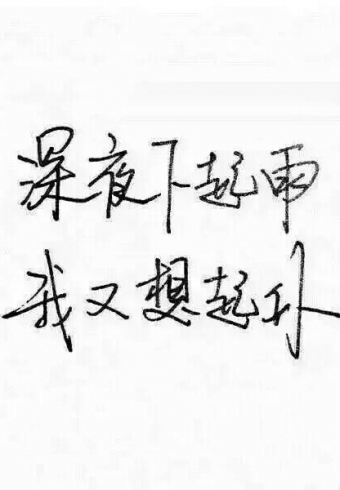 深夜下起雨
我又想起你